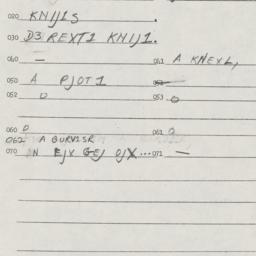 020 KNIJ1S .
030 D3 REXT1 KNIJ1.
040 — 041 A KNEXL,
050 A PJOT1 051
052 O 053 O
060 O 061 O
062 A GURV1SR
070 IN EJX GEJ OJX...071 —